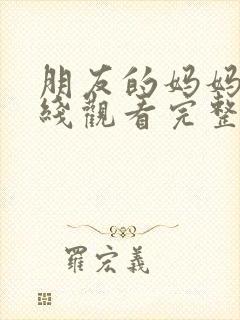 朋友的妈妈
綫觀看完整
羅宏義